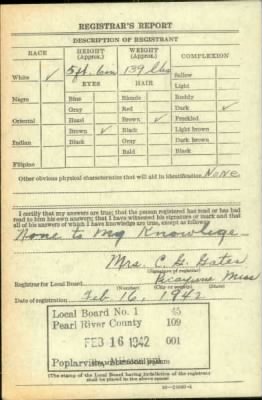 REGISTRAR'S REPORT
DESCRIPTION OF REGISTRANT
RACE HEIGHT (Approx.) WEIGHT (Approx.) COMPLEXION
5 ft. 6 in 139 lbs
White ✓ Sallow
EYES HAIR Light
Negro Blue Blonde Ruddy
Gray Red Dark ✓
Oriental Hazel Brown ✓ Freckled
Brown ✓ Black Light brown
Indian Black Gray Dark brown
Bald Black
Filipino
Other obvious physical characteristics that will aid in identification None
I certify that my answers are true; that the person registered has read or has had
read to him his own answers; that I have witnessed his signature or mark and that
all of his answers of which I have knowledge are true, except as follows:
None to my Knowledge
Mrs. C. G. Gates
(Signature of registrar)
Registrar for Local Board Picayune Miss
(Number) (City or county) (State)
Date of registration Feb. 16, 1942
Local Board No. 1 45
Pearl River County 109
FEB 16 1942 001
Poplarville, Mississippi
(The stamp of the Local Board having jurisdiction of the registrant
shall be placed in the above space)